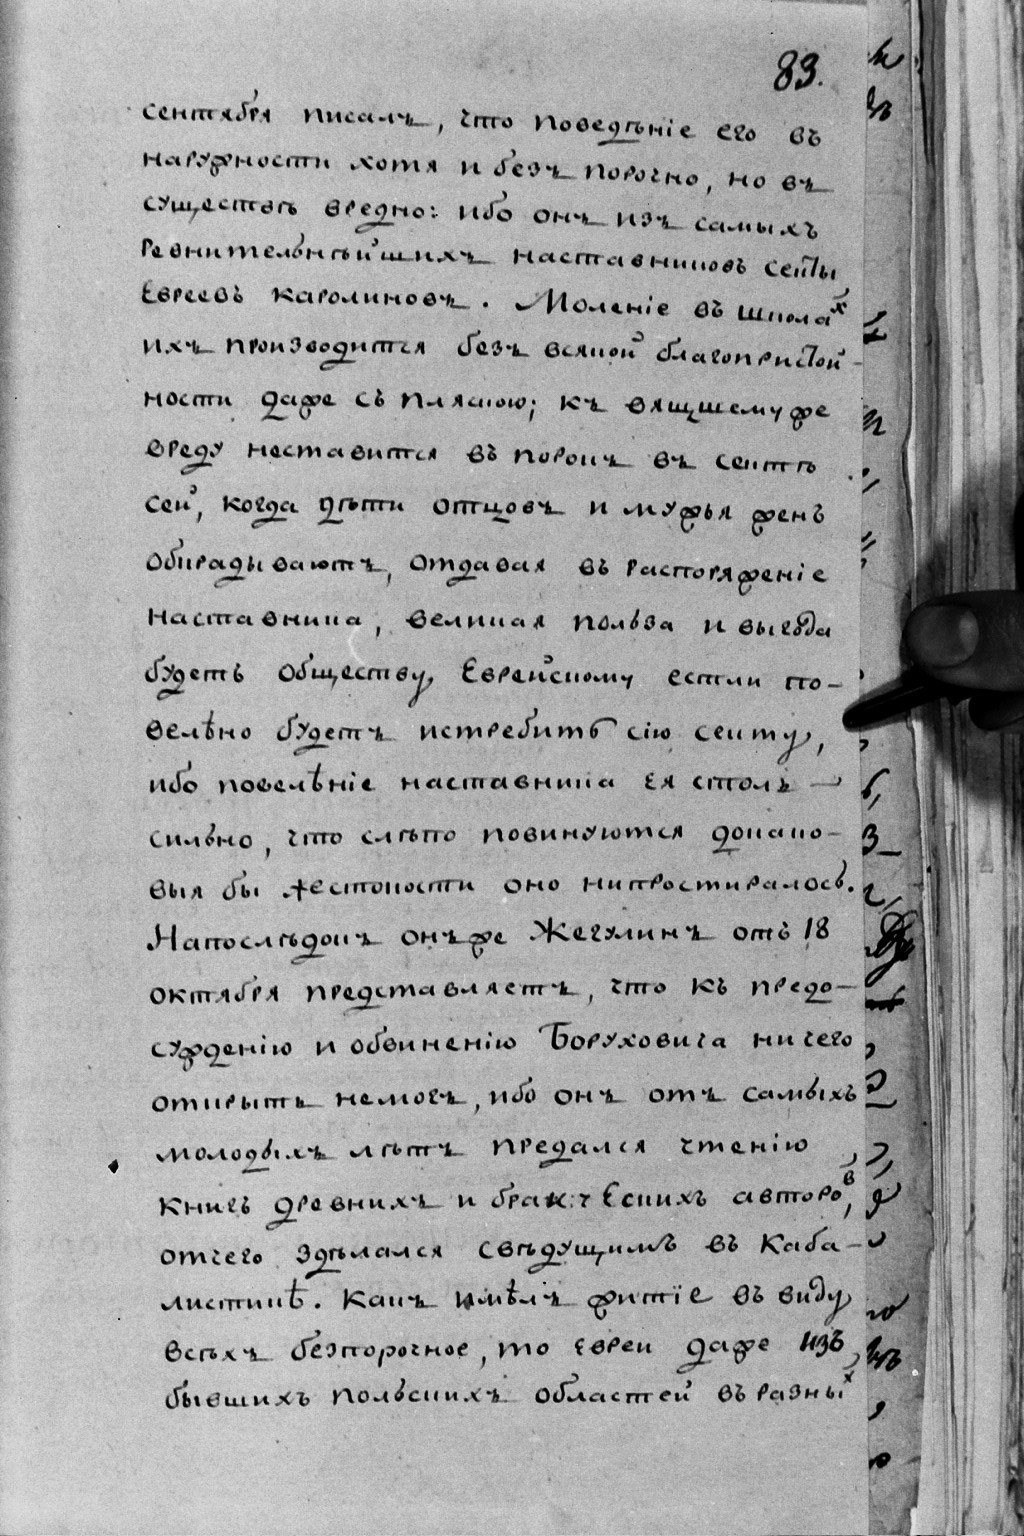 83.
сентября писалъ, что поведѣніе его въ
наружности хотя и безъ порочно, но въ
существѣ вредно: ибо онъ изъ самыхъ
ревнительнѣйшихъ наставниковъ секты
Евреевъ каролиновъ. Моленіе въ школах
ихъ производится безъ всякой благопристой-
ности даже съ пляскою; къ вящшемуже
вреду неставится въ порокъ въ сектѣ
сей, когда дѣти отцовъ и мужья женъ
обкрадываютъ, отдавая въ распоряженіе
наставника, великая польза и выгода
будетъ обществу Еврейскому естли по-
велѣно будетъ истребить сію секту,
ибо повелѣніе наставника ея столь —
сильно, что слѣпо повинуются докако-
выя бы жестокости оно нипростиралось.
Напослѣдокъ онъже Жегулинъ отъ 18
октября представляетъ, что къ предо-
сужденію и обвиненію Боруховича ничего
открыть немогъ, ибо онъ отъ самыхъ
молодыхъ лѣтъ предался чтенію
книгъ древнихъ и еврейскихъ авторов,
отчего здѣлался свѣдущимъ въ Каба-
листикѣ. Какъ имѣлъ житіе въ виду
всѣхъ безпорочное, то евреи даже изъ
бывшихъ польскихъ областей въ разных